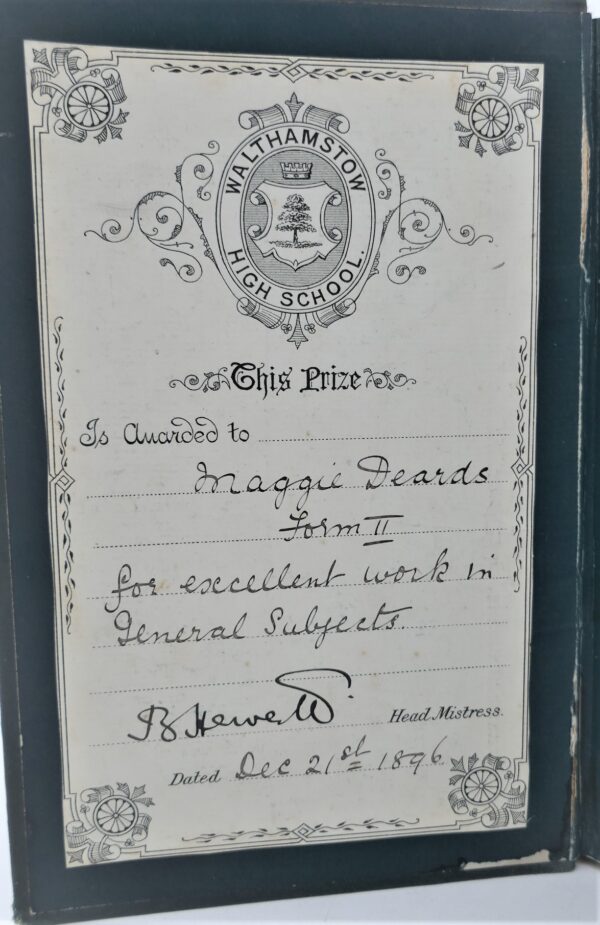 WALTHAMSTOW
HIGH SCHOOL.
This Prize
Is Awarded to
Maggie Deards
Form II
for excellent work in
General Subjects.
B Hewett
Head Mistress.
Dated Dec 21st 1896